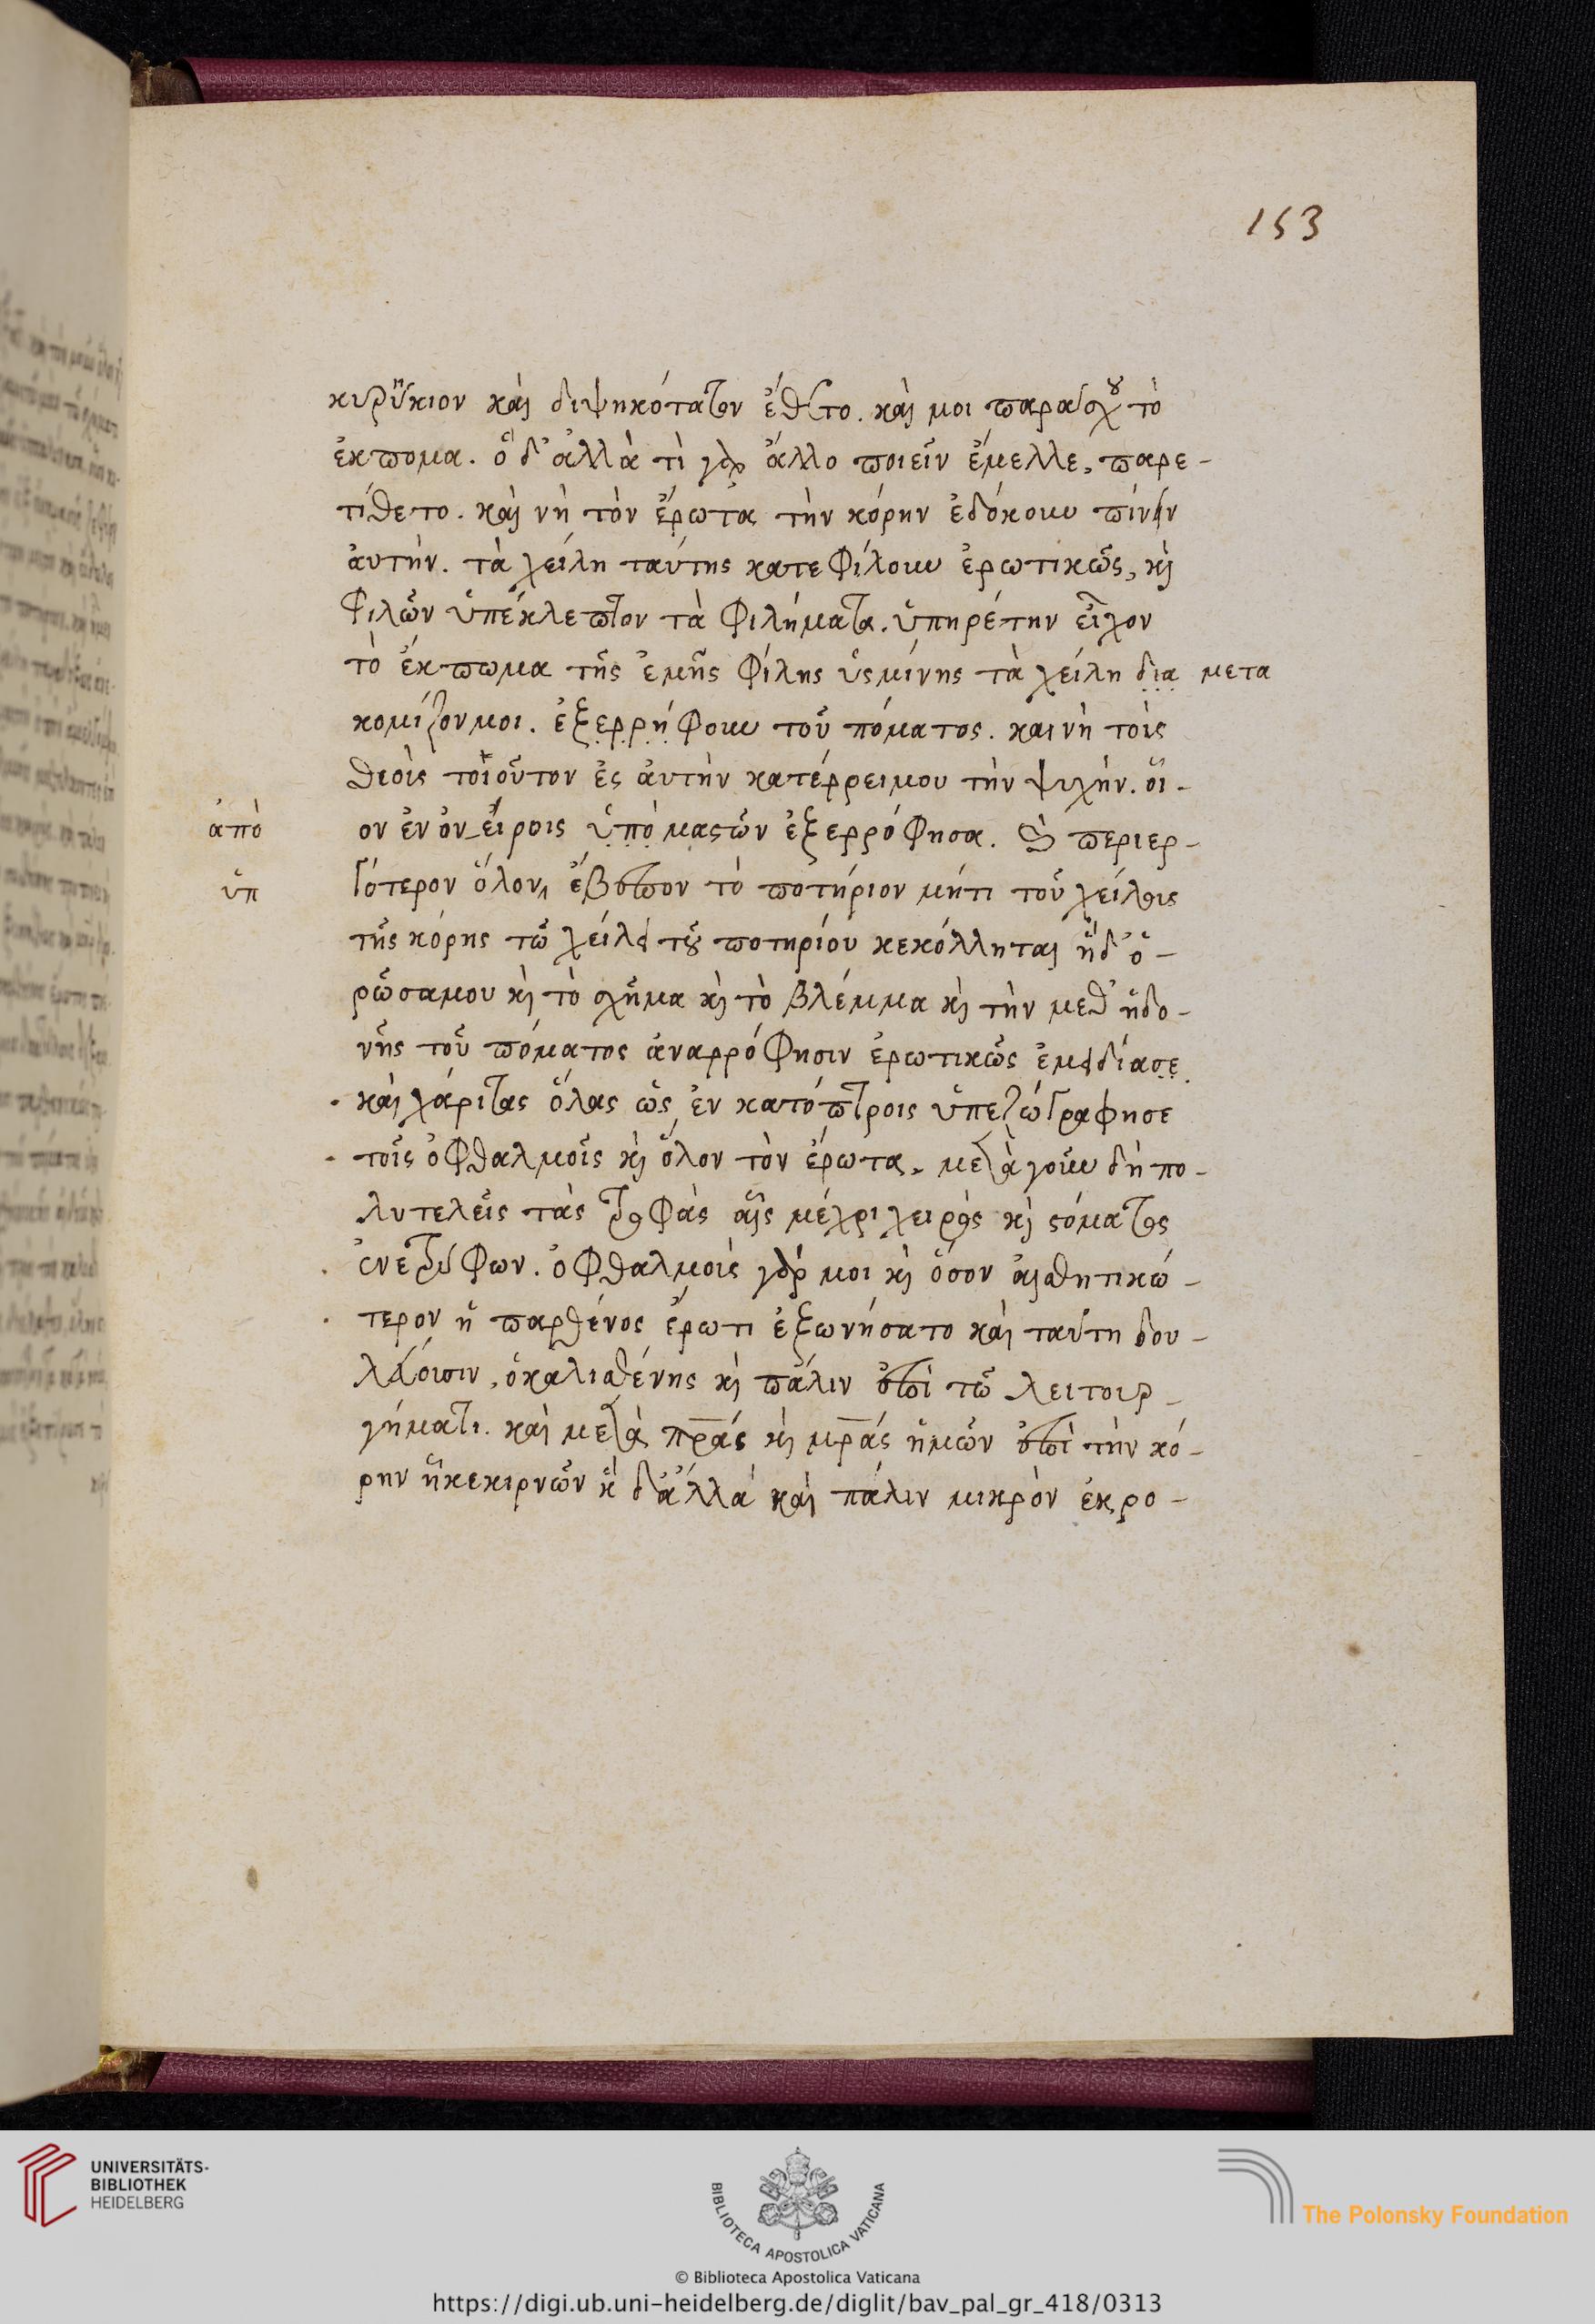 153
κυρύκιον καὶ διψηκότατον ἔθετο. καί μοι παράσχου τὸ
ἔκπομα. ὁ δ' ἀλλὰ τὶ γὰρ ἄλλο ποιεῖν ἔμελλε, παρε-
τίθετο. καὶ νὴ τὸν ἔρωτα τὴν κόρην ἐδόκουν πίνειν
ἀυτήν. τὰ χείλη ταύτης κατεφίλουν ἐρωτικῶς, κὶ
φιλῶν ὑπέκλεπτον τὰ φιλήματα. ὑπηρέτην εἶχον
τὸ ἔκπωμα τῆς ἐμῆς φίλης ὑσμίνης τὰ χείλη δια μετα
κομίζον μοι. ἐξερρήφουν τοῦ πόματος. και νὴ τοὶς
θεοὶς τοῖοῦτον ἐς ἀυτὴν κατέρρει μου τὴν ψυχήν. οἷ-
ἀπὸ ον ἐν ὀνείροις ὑπὸ μαστῶν ἐξερρόφησα. περιερ-
ὑπ γότερον ὅλον ἔβλεπον τὸ ποτήριον μήτι τοῦ χείλους
τῆς κόρης τῶ χείλει τοῦ ποτηρίου κεκόλληται ἡ δ' ὁ-
ρῶσα μου κὶ τὸ σχῆμα κὶ τὸ βλέμμα κὶ τὴν μεθ' ἡδο-
νῆς τοῦ πόματος ἀναρρόφησιν ἐρωτικῶς ἐμειδίασε
καὶ χάριτας ὅλας ὡς ἐν κατόπτροις ὑπεζωγράφησε
τοῖς ὀφθαλμοῖς κὶ ὅλον τὸν ἔρωτα. μετὰ γοῦν δὴ πο-
λυτελεῖς τὰς τροφὰς αἷς μέχρι χειρὸς κὶ στόματος
ἐνετρύφων. ὀφθαλμοὶς γάρ μοι κὶ ὅσον αἰσθητικώ-
τερον ἡ παρθένος ἔρωτι ἐξωνήσατο καὶ ταύτη δου-
λεύουσιν, ὁ καλισθένης κὶ πάλιν ἐπὶ τῶ λειτουρ-
γήματι. καὶ μετὰ πρ̅άς κὶ μρ̅άς ἡμῶν ἐπὶ τὴν κό-
ρην ἧκε κιρνῶν ἡ δ' ἀλλὰ καὶ πάλιν μικρὸν ἐκρο-
UNIVERSITÄTS-
BIBLIOTHEK
HEIDELBERG
BIBLIOTECA APOSTOLICA VATICANA
The Polonsky Foundation
© Biblioteca Apostolica Vaticana
https://digi.ub.uni-heidelberg.de/diglit/bav_pal_gr_418/0313